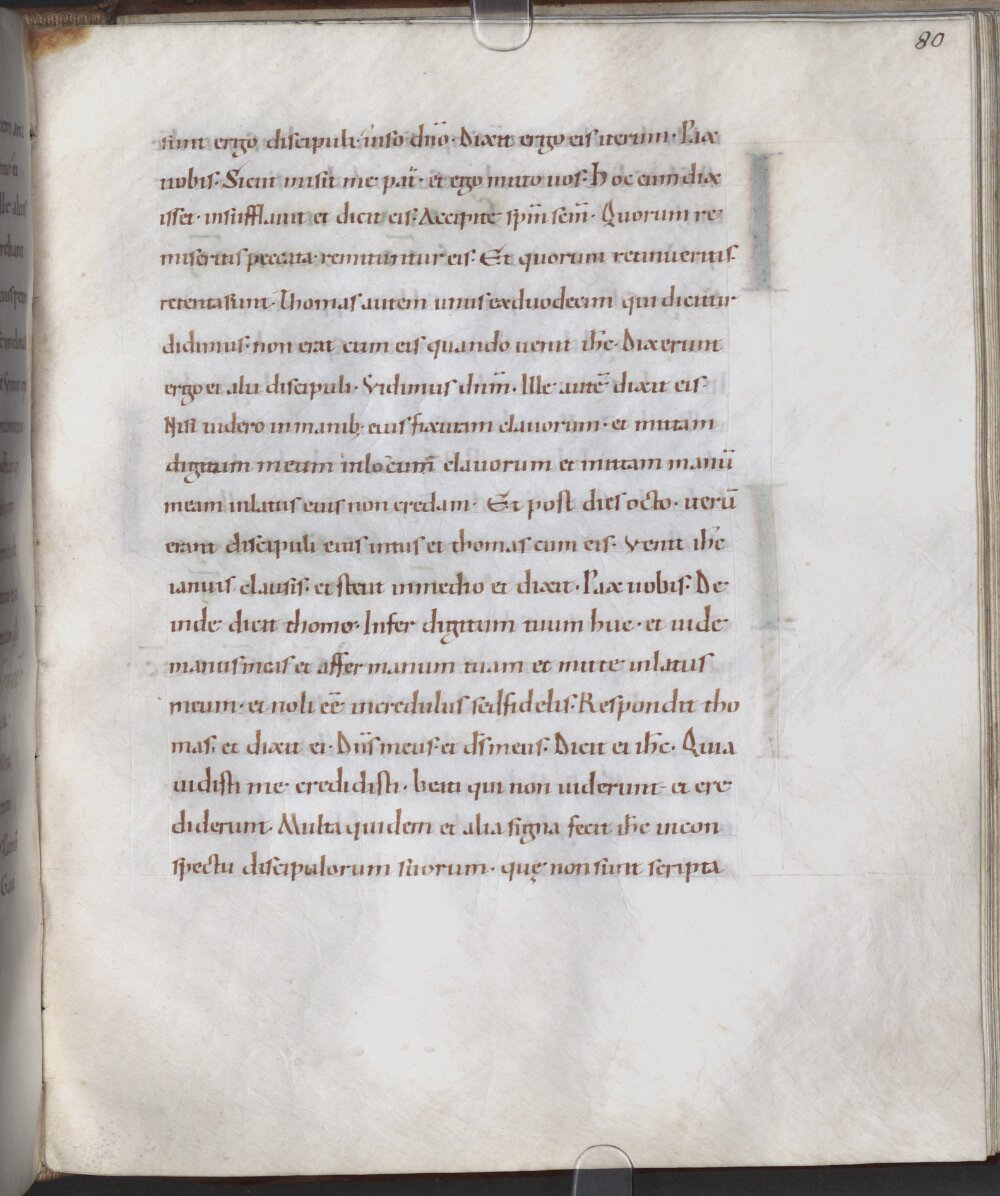 80
sunt ergo discipuli uiso dño. Dixit ergo eis iterum. Pax
uobis. Sicut misit me pat̄. et ego mitto uos. Hoc cum dix
isset. insufflauit et dicit eis. Accipite spm̄ scm̄. Quorum re
miseritis peccata remittuntur eis. Et quorum retinueritis
retenta sunt. Thomas autem unus ex duodecim qui dicitur
didimus. non erat cum eis quando uenit ih̄c. Dixerunt
ergo ei alii discipuli. Vidimus dnm̄. Ille autē dixit eis.
Nisi uidero in manib; eius fixuram clauorum. et mittam
digitum meum in locum clauorum et mittam manū
meam in latus eius non credam. Et post dies octo. iterū
erant discipuli eius intus et thomas cum eis. Venit ih̄c
ianuis clausis. et stetit in medio et dixit. Pax uobis. De
inde dicit thomę. Infer digitum tuum huc. et uide
manus meas et affer manum tuam et mitte in latus
meum. et noli eē incredulus sed fidelis. Respondit tho
mas. et dixit ei. Dn̄s meus et ds̄ meus. Dicit ei ih̄c. Quia
uidisti me credidisti. beati qui non uiderunt et cre
diderunt. Multa quidem et alia signa fecit ih̄c in con
spectu discipulorum suorum. quę non sunt scripta